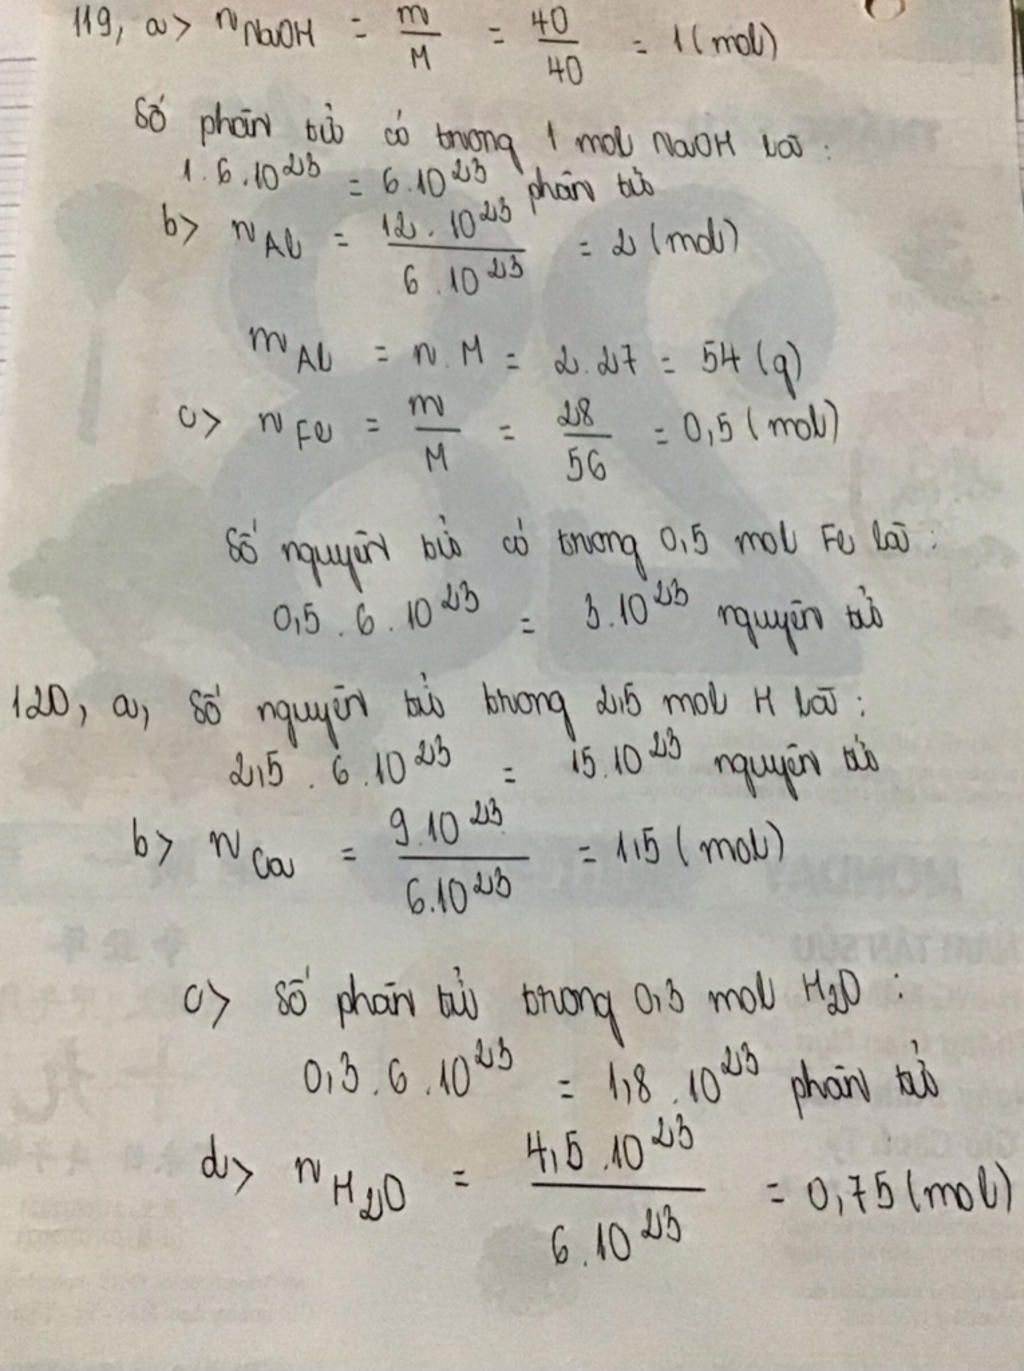 119, a> n NaOH = m/M = 40/40 = 1 (mol)
Số phân tử có trong 1 mol NaOH là :
1 . 6 . 10^23 = 6 . 10^23 phân tử
b> n Al = 12 . 10^23 / 6 . 10^23 = 2 (mol)
m Al = n . M = 2 . 27 = 54 (g)
c> n Fe = m/M = 28/56 = 0,5 (mol)
Số nguyên tử có trong 0,5 mol Fe là :
0,5 . 6 . 10^23 = 3 . 10^23 nguyên tử
120, a, Số nguyên tử trong 2,5 mol H là :
2,5 . 6 . 10^23 = 15 . 10^23 nguyên tử
b> n Ca = 9 . 10^23 / 6 . 10^23 = 1,5 (mol)
c> Số phân tử trong 0,3 mol H2O :
0,3 . 6 . 10^23 = 1,8 . 10^23 phân tử
d> n H2O = 4,5 . 10^23 / 6 . 10^23 = 0,75 (mol)